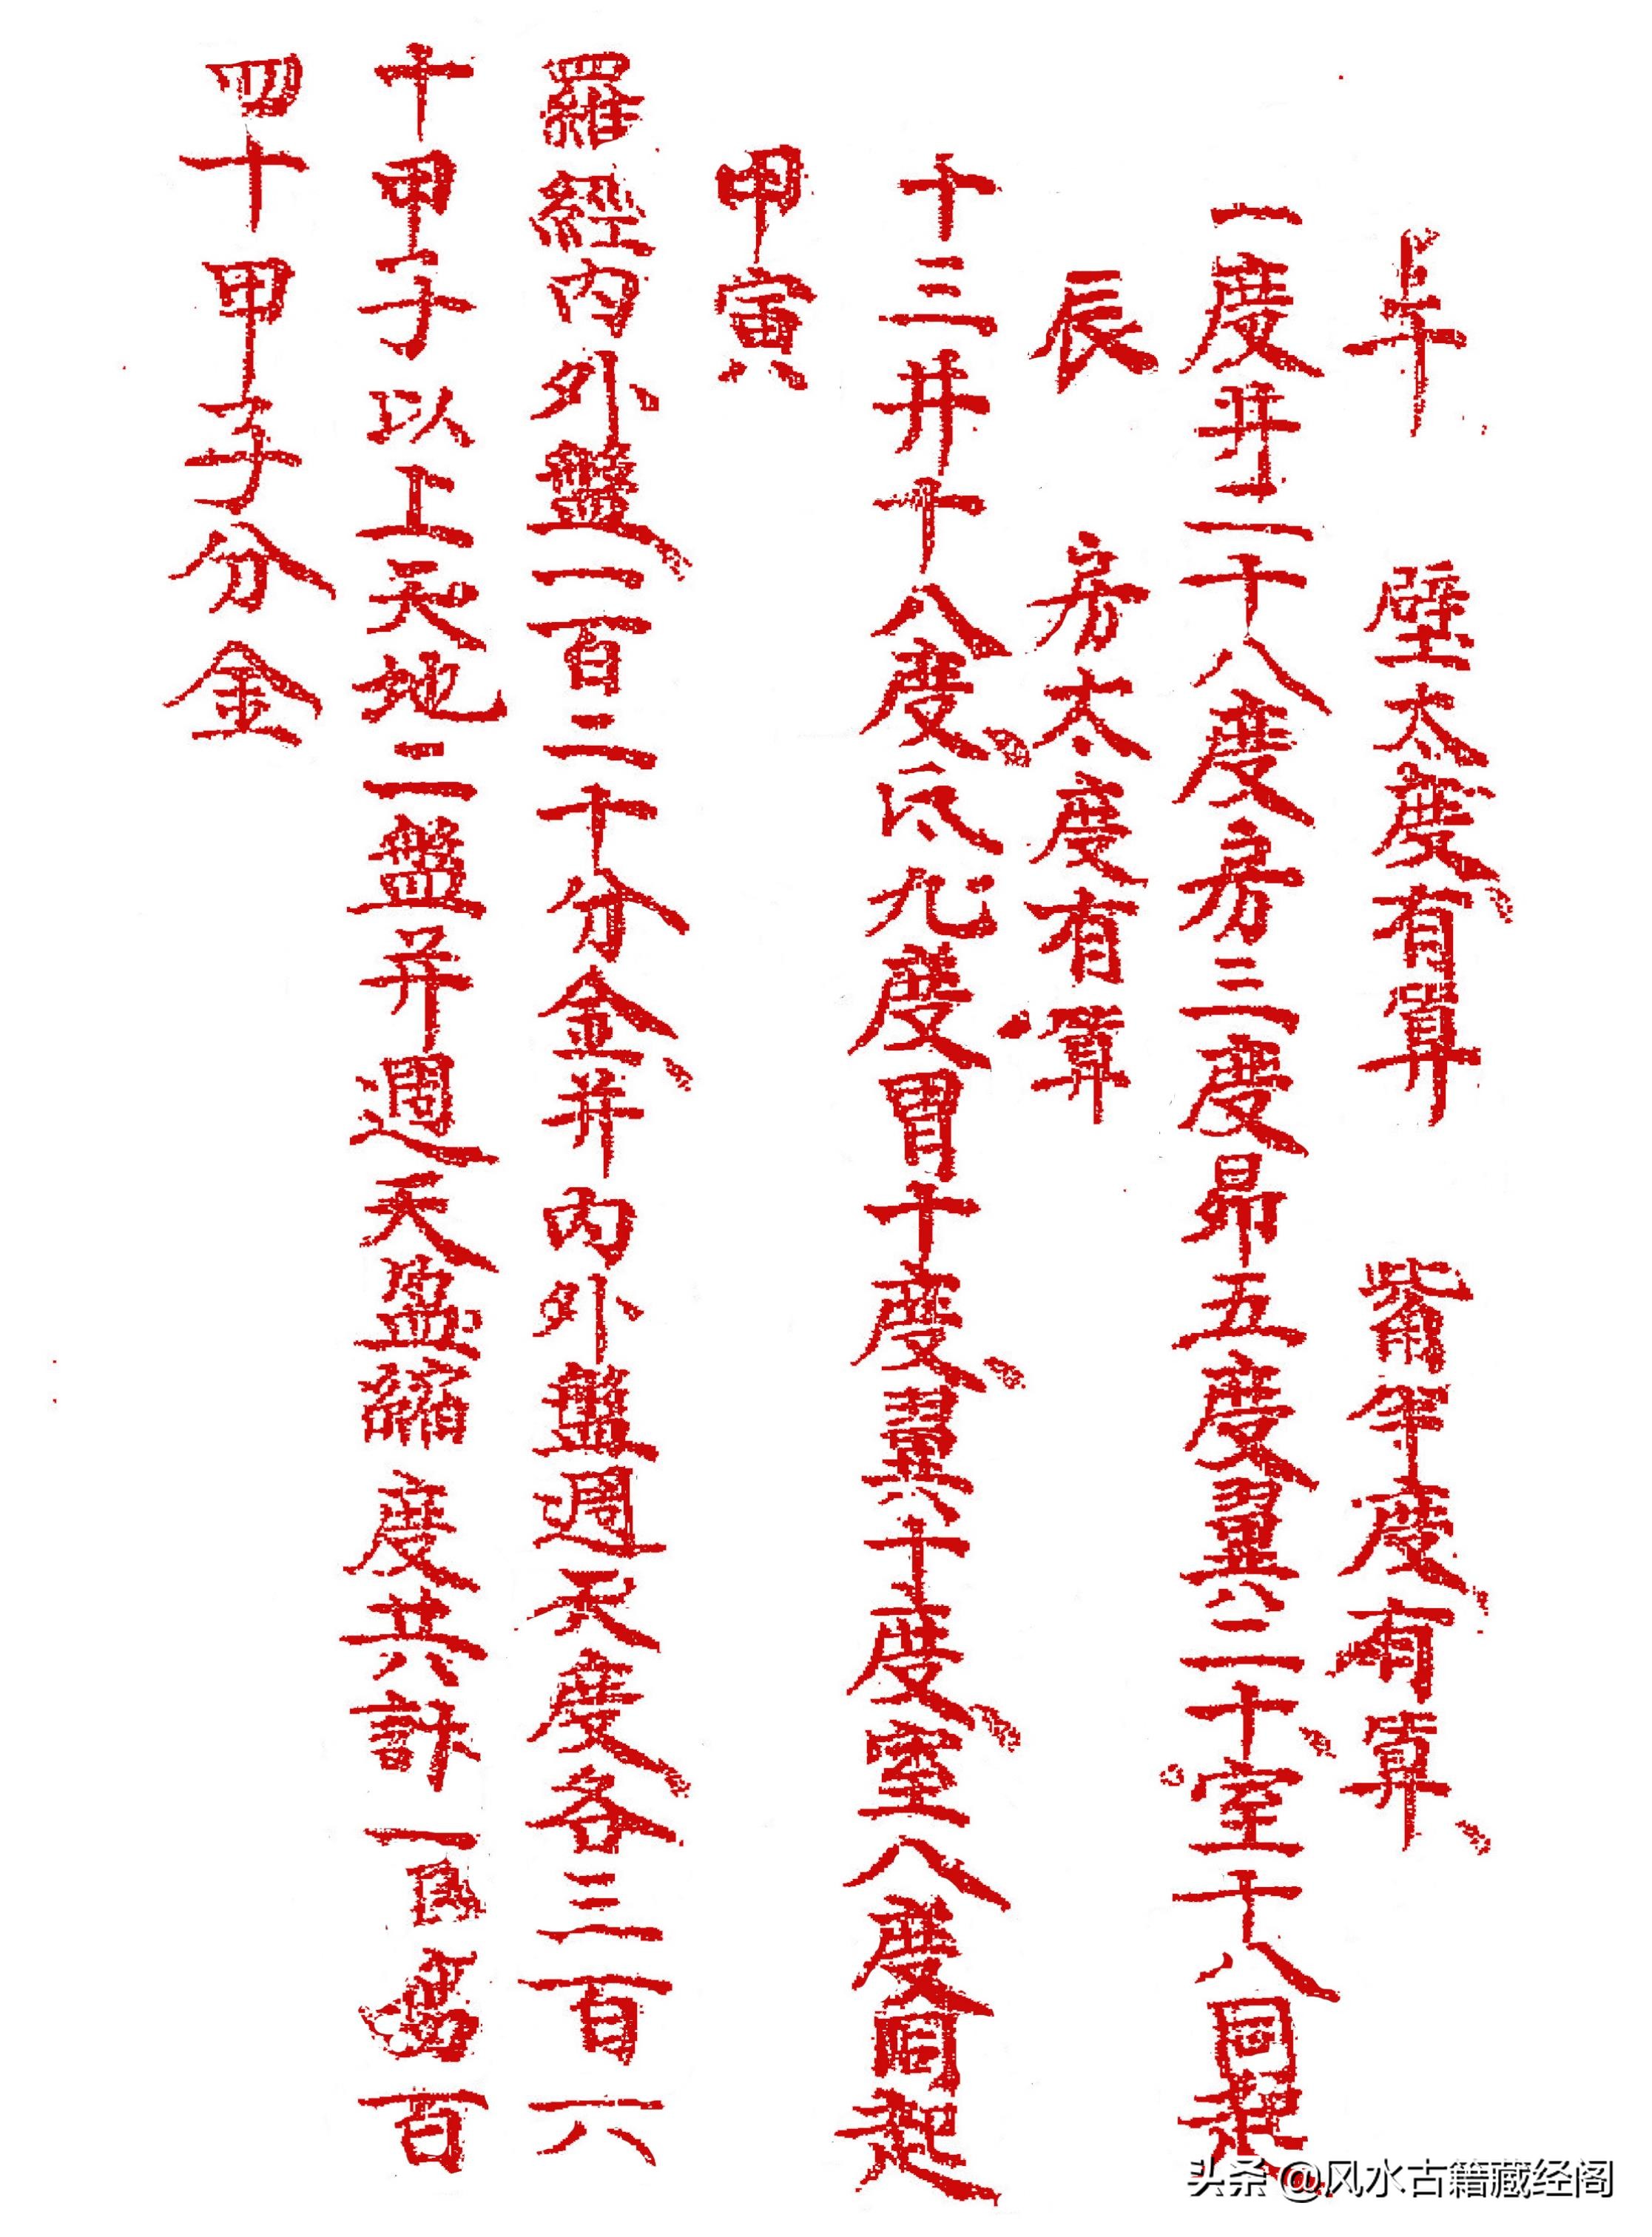 壁太度有算 觜半度有算
一度井二十八度房三度昴五度翼二十室十八同起
辰 房太度有算
十三井十八度氐九度胃十度翼十度室八度同起
甲寅
羅經內外盤一百二十分金并內外盤週天度各三百六
十甲子以上天地二盤并週天盈縮度共計一百
四十甲子分金
头条 @风水古籍藏经阁